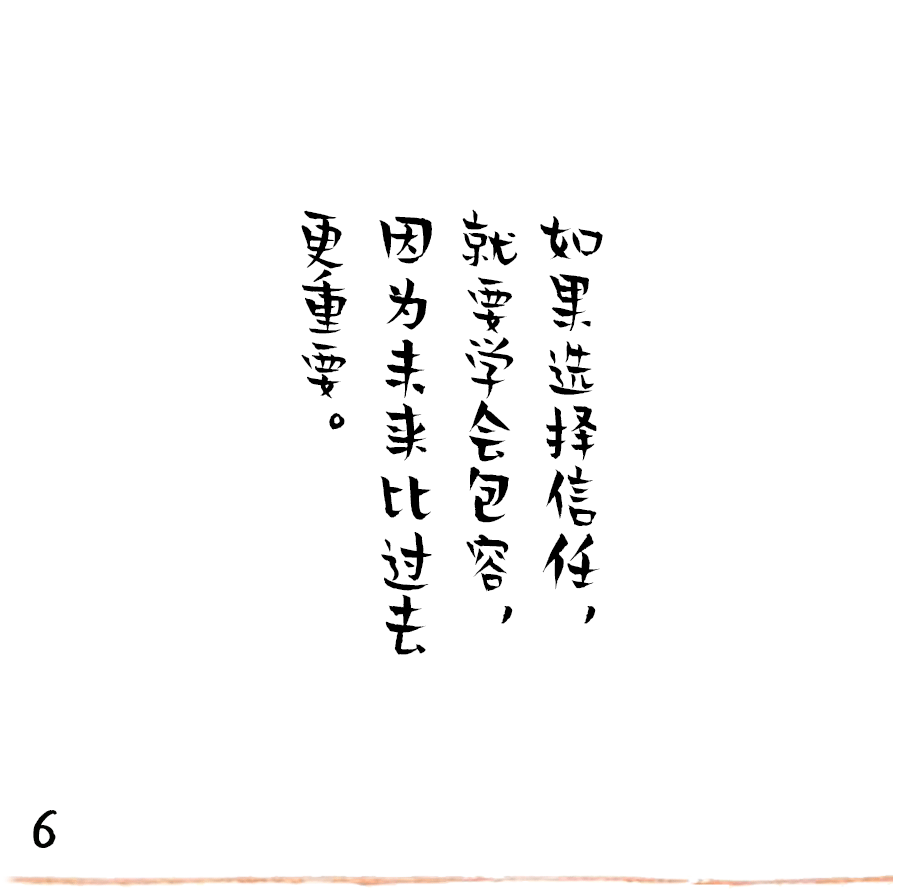 如果选择信任，
就要学会包容，
因为未来比过去
更重要。
6